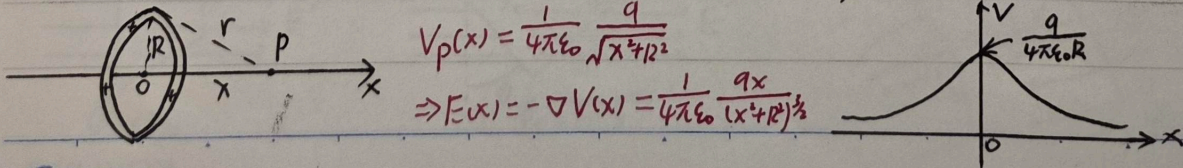 R r P
O x x
V_P(x) = \frac{1}{4πε₀} \frac{q}{\sqrt{x²+R²}}
⇒ E(x) = -∇V(x) = \frac{1}{4πε₀} \frac{qx}{(x²+R²)^{3/2}}
V
\frac{q}{4πε₀R}
O x